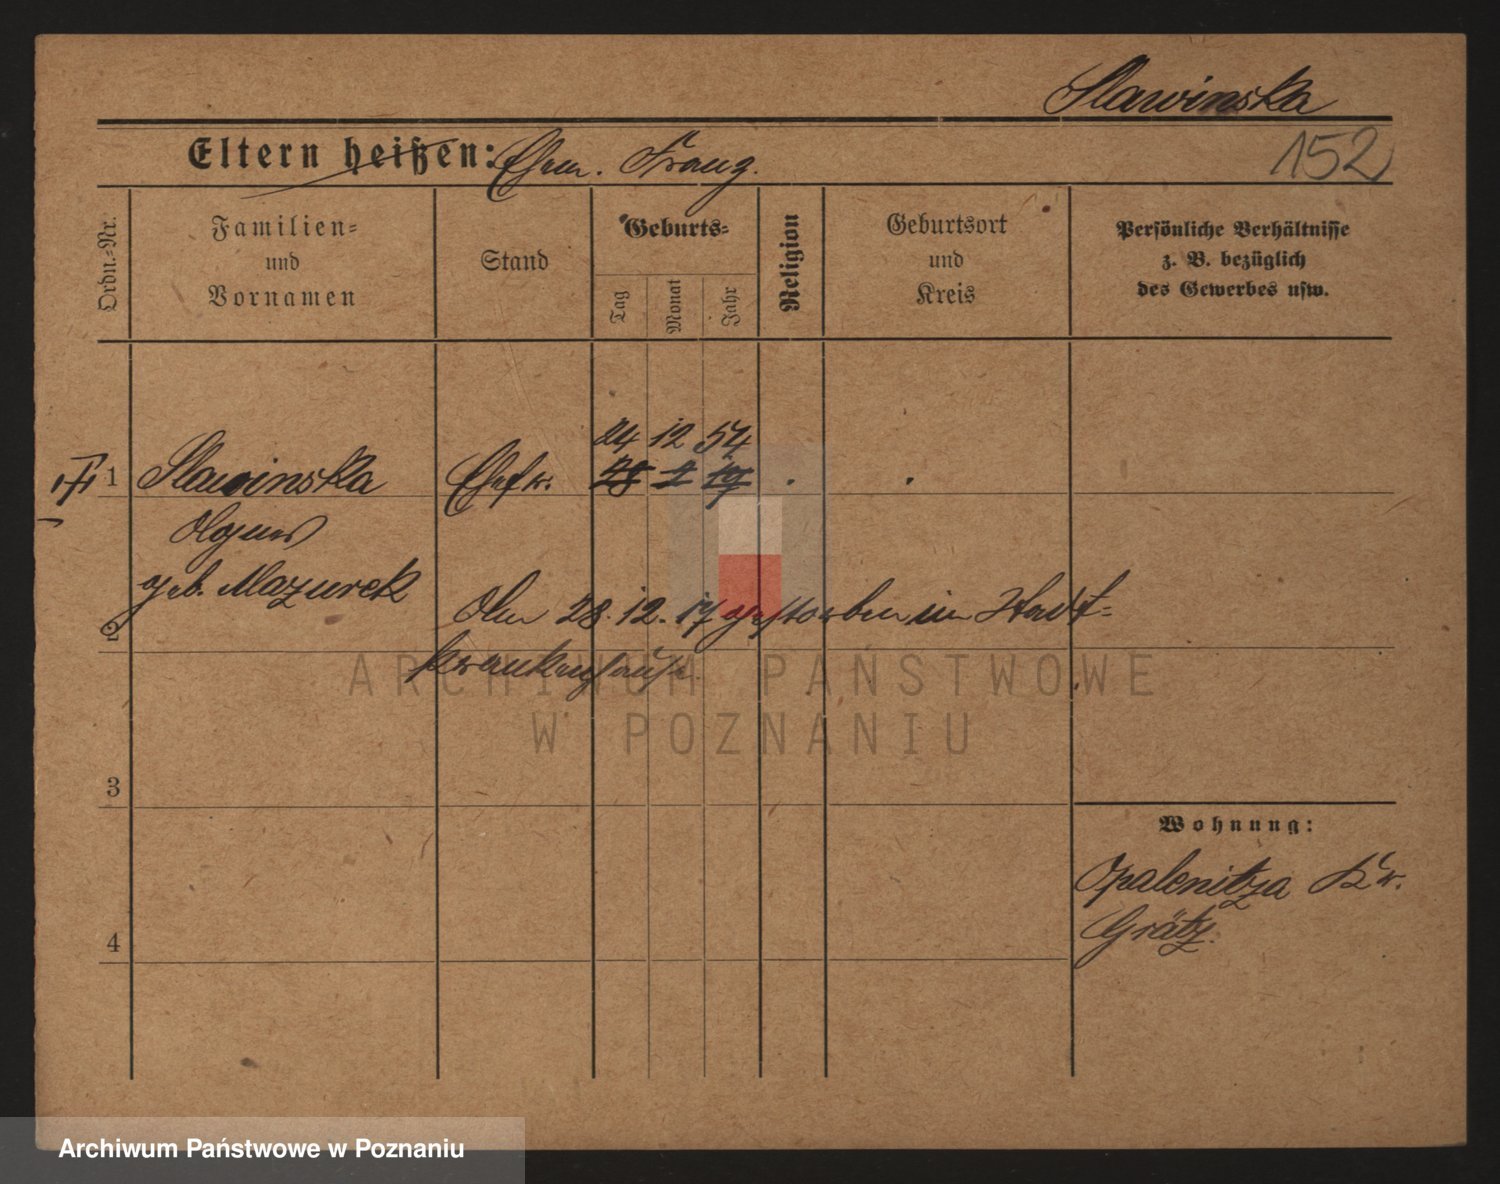 Slawinska
152
Eltern heißen: Ehem. Franz.
Ordn.-Nr.
Familien-
und
Vornamen
Stand
Geburts-
Tag
Monat
Jahr
Religion
Geburtsort
und
Kreis
Persönliche Verhältnisse
z. B. bezüglich
des Gewerbes usw.
24 12 54
1 Slawinska Ehefr. 28 2 19
geb. Mazurek
2 Am 28.12.17 gestorben im Stadt-
krankenhause.
ARCHIWUM PAŃSTWOWE
W POZNANIU
3
Wohnung:
Opalenitza Kr.
Grätz.
4
Archiwum Państwowe w Poznaniu